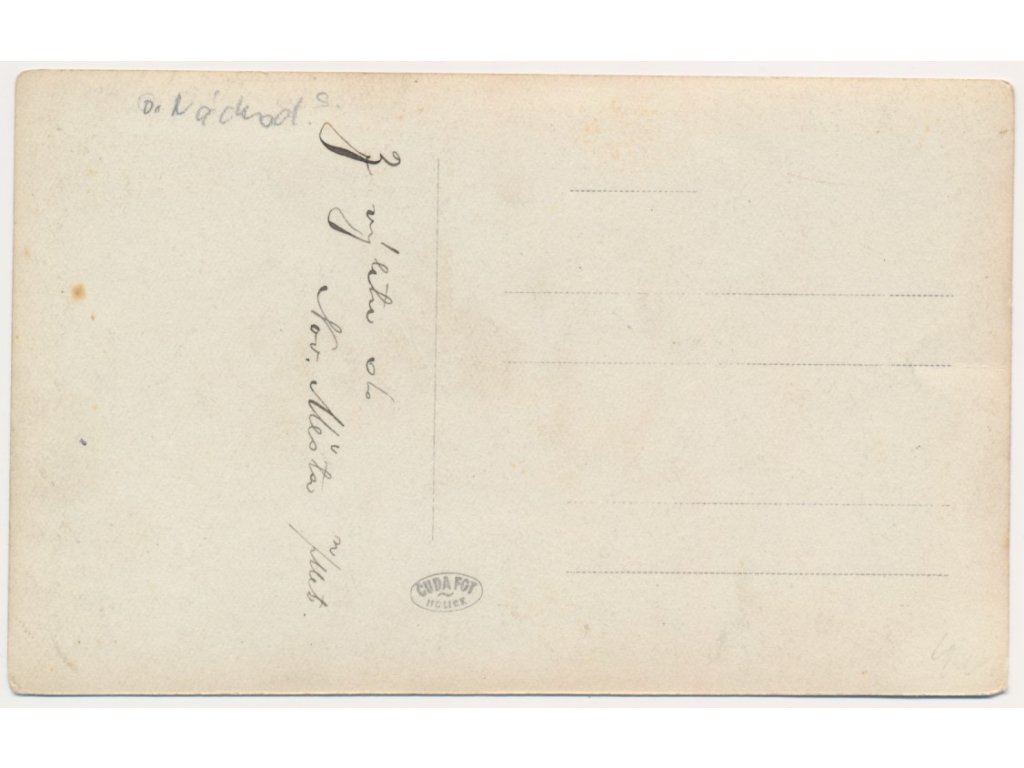 o. Náchod s.
Z výletu do
Nov. Města n/Met.
ČUDA FGT
HOLICE